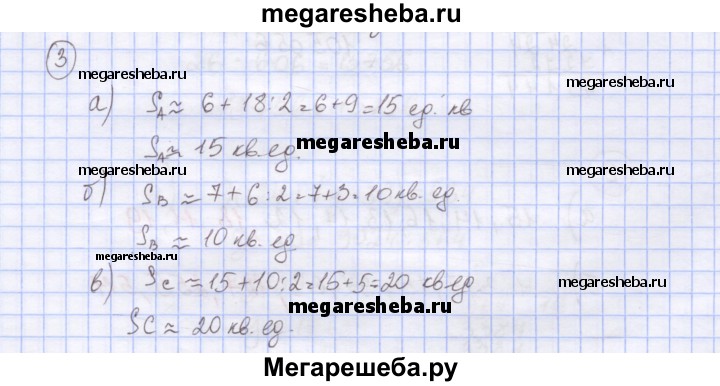 megaresheba.ru
3
megaresheba.ru megaresheba.ru
а) SA ≈ 6 + 18 : 2 = 6 + 9 = 15 ед. кв
megaresheba.ru
SA ≈ 15 кв. ед.
megaresheba.ru megaresheba.ru
б) SB ≈ 7 + 6 : 2 = 7 + 3 = 10 кв. ед.
SB ≈ 10 кв. ед
megaresheba.ru
в) Sc ≈ 15 + 10 : 2 = 15 + 5 = 20 кв. ед
megaresheba.ru
megaresheba.ru
SC ≈ 20 кв. ед.
Мегарешеба.ру